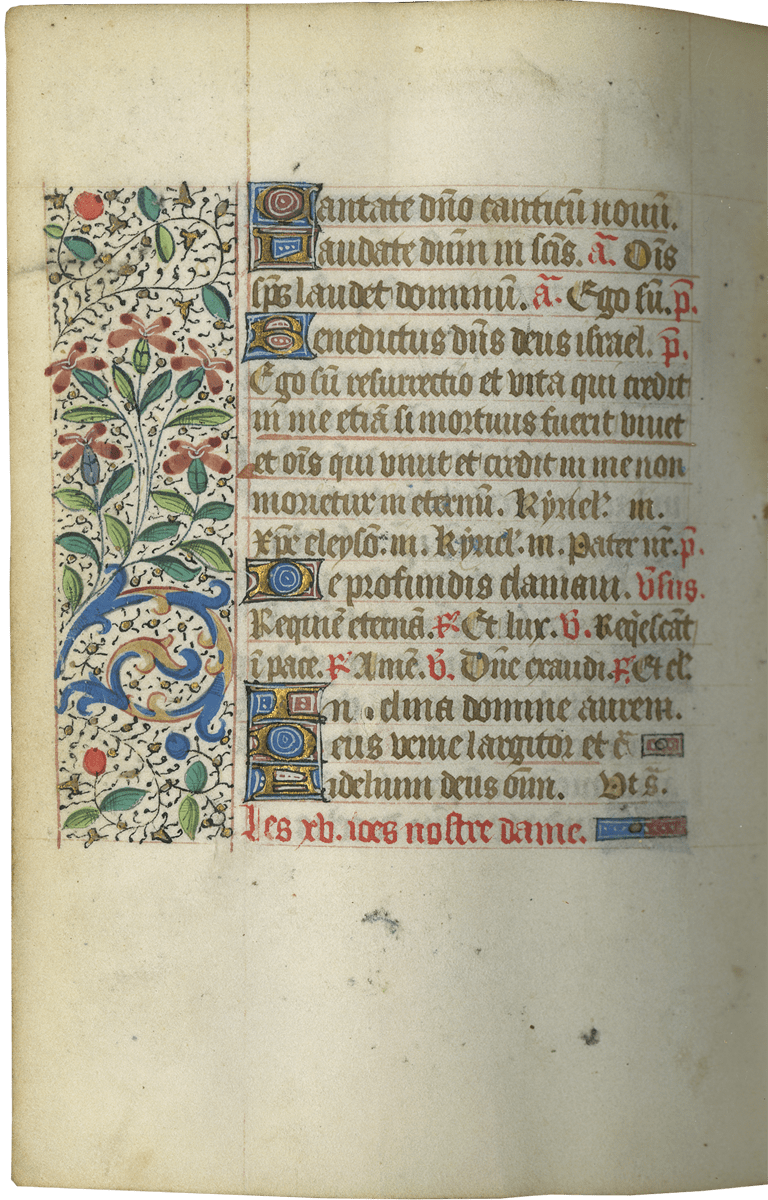 Cantate dño canticū nouū.
Laudate dñm in scīs. a͞. Oīs
sp̄s laudet dominū. a͞. Ego sū. p̄.
Benedictus dñs deus israel. p̄.
Ego sū resurrectio et vita qui credit
in me etiā si mortuus fuerit viuet
et oīs qui viuit et credit in me non
morietur in eternū. Kyriel'. m.
xp̄e eleysō. m. Kyriel'. m. Pater nr̄. p̄.
De profundis clamaui. v̄sus.
Requiē eternā. ℟ Et lux. v̄. Reqiescāt
ī pace. ℟ Amē. v̄. Dñe exaudi. ℟ Et cl'.
In clina domine aurem.
Deus venie largitor et c̄
Fidelium deus om̄. Vt s̄.
Les xv. ioes nostre dame.